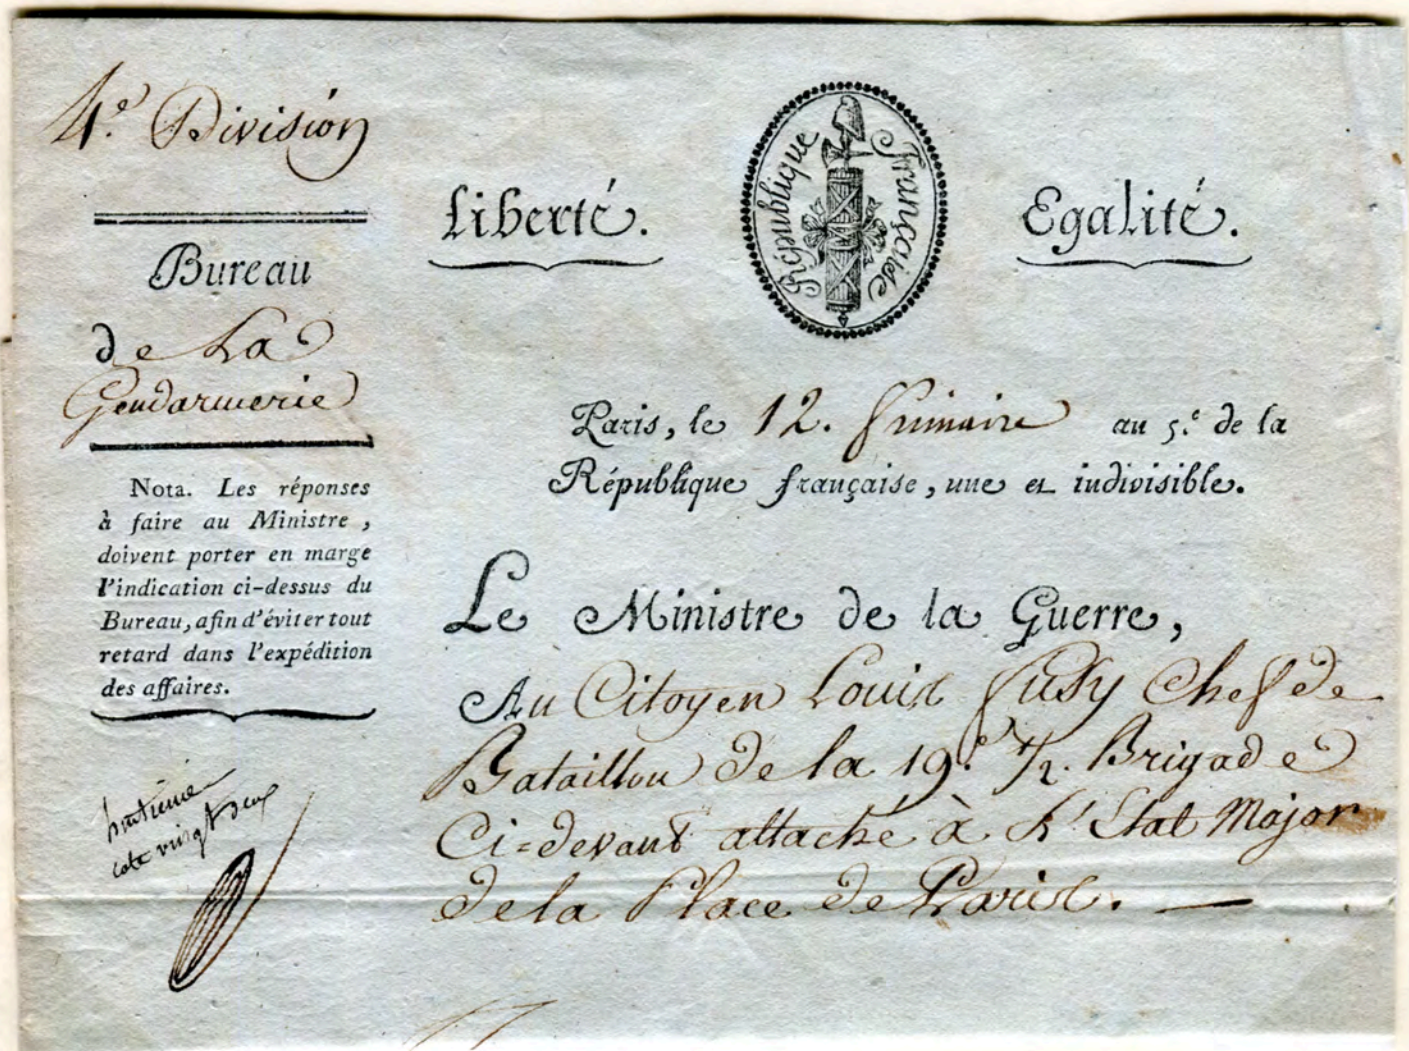 4.e Division
Bureau
de La
Gendarmerie
Nota. Les réponses
à faire au Ministre,
doivent porter en marge
l'indication ci-dessus du
Bureau, afin d'éviter tout
retard dans l'expédition
des affaires.
cote vingt deux
Liberté.
République Française
Egalité.
Paris, le 12. frimaire an 5.e de la
République française, une et indivisible.
Le Ministre de la Guerre,
Au Citoyen Louis Chef de
Bataillon de la 19.e 1/2. Brigade
Ci=devant attaché à L'Etat Major
de la Place de Paris. —